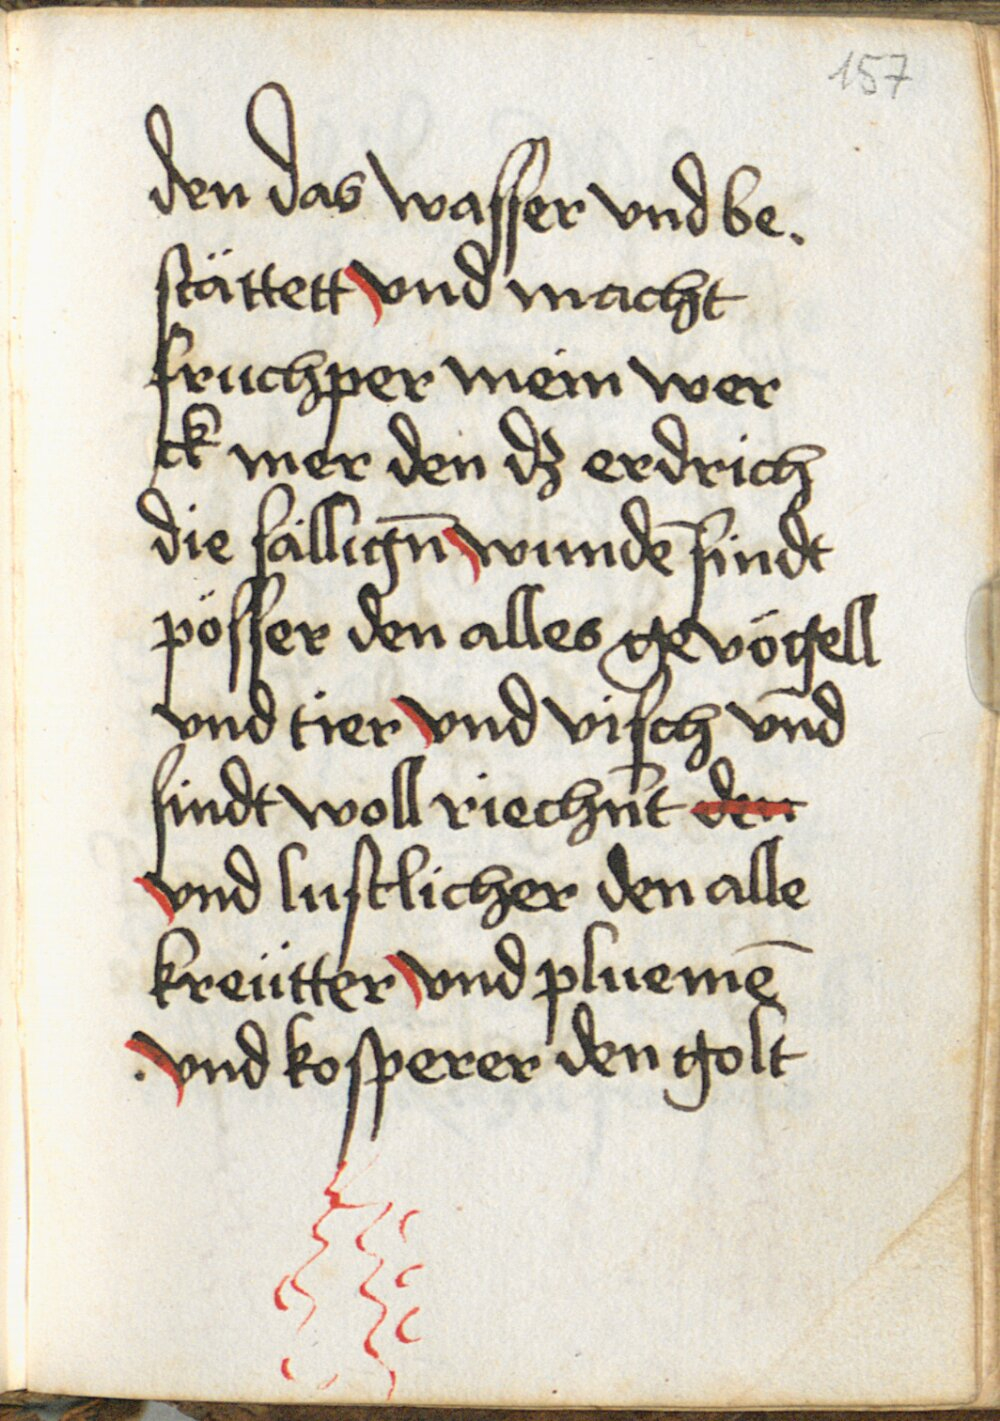 157
den das wasser vnd be.
stättett vnd macht
fruchper mein wer
ck mer den dz erdrich
die sälligñ wundē sindt
pösser den alles gevögell
vnd tier vnd visch vnd
sindt woll riechñt den
vnd lustlicher den alle
kreütter vnd pluemē
. vnd kosperer den golt